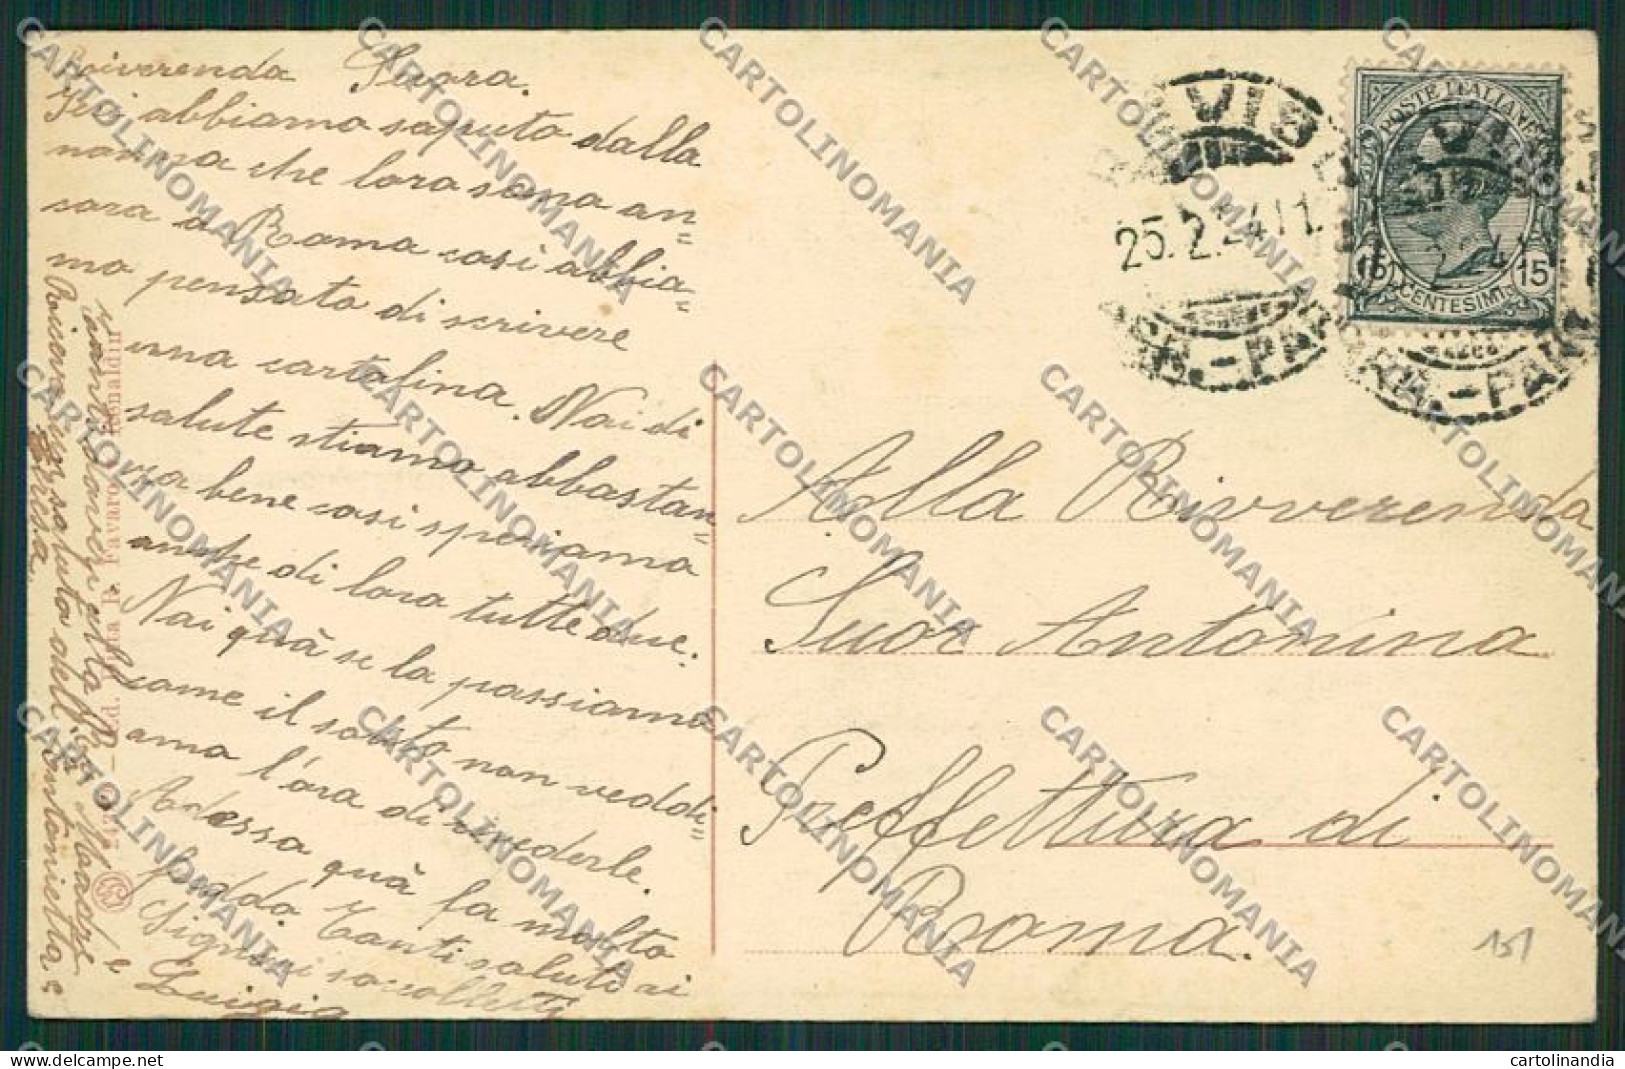 Reiverenda Suora.
Ieri abbiamo saputo dalla
nonna che loro sono an"
cora a Roma cosi abbia"
mo pensato di scrivere
una cartolina. Noi di
salute stiamo abbastan"
za bene cosi speriamo
anche di loro tutte due.
Noi quà se la passiamo
come il solito non veddi"
amo l'ora di rivederle.
Adesso quà fa molto
freddo. Tanti saluti ai
Signori
Luigia
tanti alla R. Madre e
Riceva saluto dell' Antonietta e
Teresa.
Ed. Ditta B. Favaro Rinaldin
VIS
25.2.24.11
POSTE ITALIANE
15 CENTESIMI 15
Alla Rivverenda
Suor Antonina
Preffettura di
Roma.
151
CARTOLINOMANIA
cartolinandia